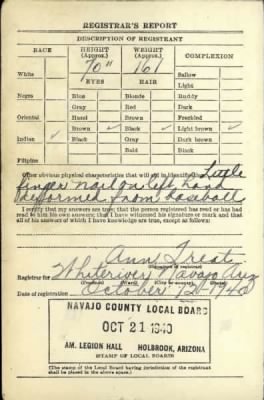 REGISTRAR'S REPORT
DESCRIPTION OF REGISTRANT
RACE HEIGHT (Approx.) WEIGHT (Approx.) COMPLEXION
White 70" 161 Sallow
EYES HAIR Light
Negro Blue Blonde Ruddy
Gray Red Dark
Oriental Hazel Brown Freckled
Brown ✓ Black ✓ Light brown ✓
Indian ✓ Black Gray Dark brown
Bald Black
Filipino
Other obvious physical characteristics that will aid in identification Little
finger nail on left hand
deformed from baseball
I certify that my answers are true; that the person registered has read or has had
read to him his own answers; that I have witnessed his signature or mark and that
all of his answers of which I have knowledge are true, except as follows:
Ann Treat
(Signature of registrar)
Registrar for Whiteriver Navajo Ariz
(Precinct) (Ward) (City or county) (State)
Date of registration October 12 1940
NAVAJO COUNTY LOCAL BOARD
OCT 21 1940
AM. LEGION HALL HOLBROOK, ARIZONA
(STAMP OF LOCAL BOARD)
(The stamp of the Local Board having jurisdiction of the registrant
shall be placed in the above space.)